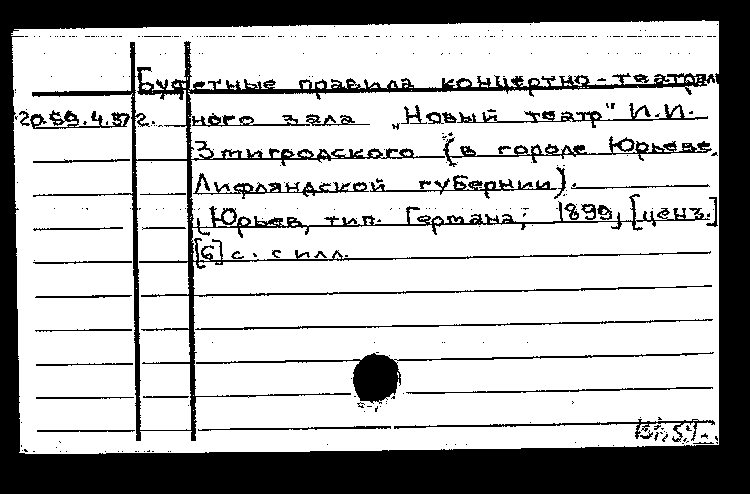 Буфетные правила концертно-театраль
20.59.4.87г. ного зала „Новый театр" И.И.
Змигродского (в городе Юрьеве,
Лифляндской губернии).
[Юрьев, тип. Германа, 1899] [ценз.]
[6] с. с илл.